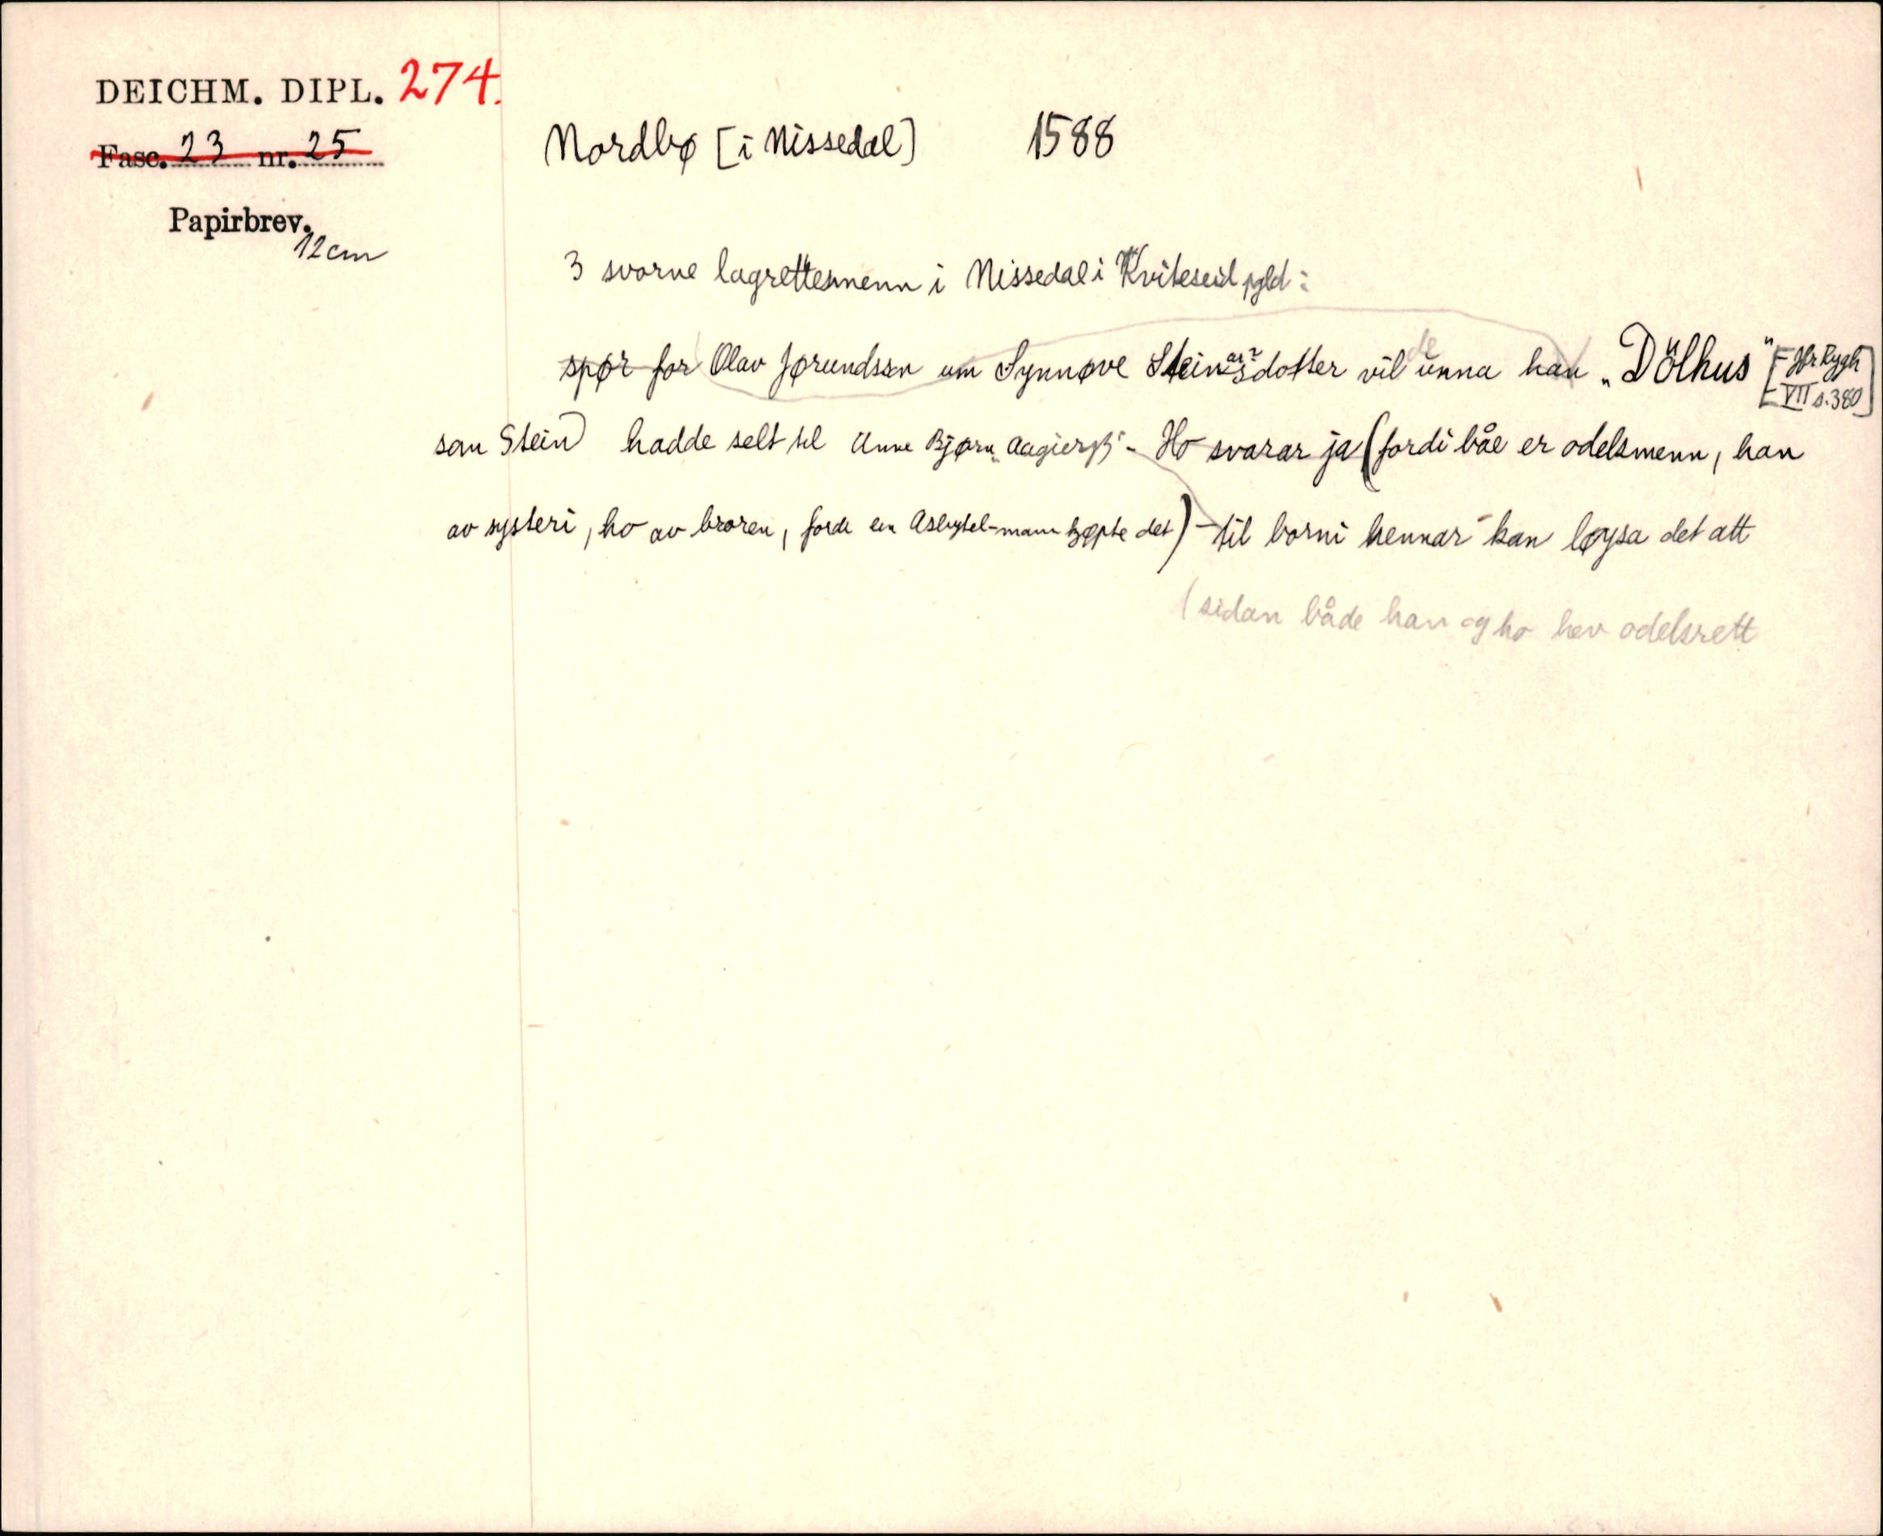 DEICHM. DIPL. 274.
Fasc. 23 nr. 25
Papirbrev.
12 cm
Nordbø [i Nissedal] 1588
3 svorne lagrettesmenn i Nissedal i Kviteseid pgld:
spør for Olav Jørundssn um Synnøve Steinsdotter vil de unna han „Dölhus" [Jfr Rygh
VII s. 380]
som Stein) hadde selt til Bjørn „ - Ho svarar ja (fordi båe er odelsmenn, han
av systeri, ho av broren, forde ein mann kjøpte det) - til borni hennar kan løysa det att
(sidan både han og ho hev odelsrett